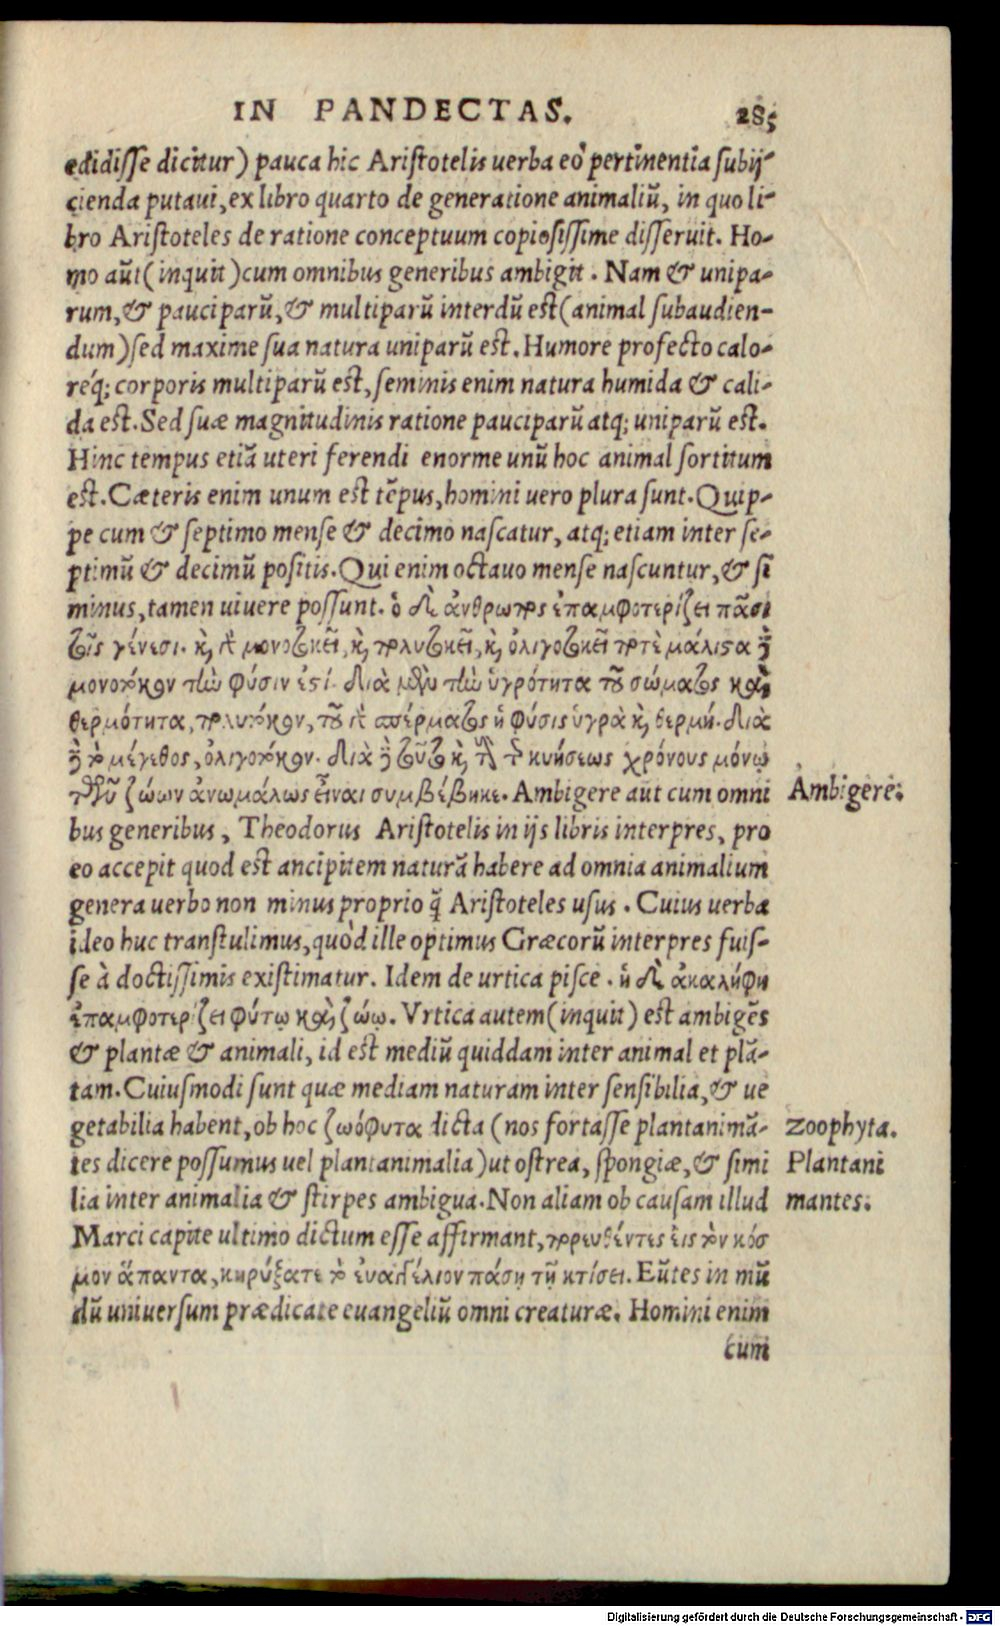 IN PANDECTAS. 285
edidisse dicitur) pauca hic Aristotelis uerba eò pertinentia subij-
cienda putaui, ex libro quarto de generatione animaliũ, in quo li-
bro Aristoteles de ratione conceptuum copiosissime disseruit. Ho-
mo aũt (inquit) cum omnibus generibus ambigit. Nam & unipa-
rum, & pauciparũ, & multiparũ interdũ est (animal subaudien-
dum) sed maxime sua natura uniparũ est. Humore profecto calo-
réq; corporis multiparũ est, seminis enim natura humida & cali-
da est. Sed suæ magnitudinis ratione pauciparũ atq; uniparũ est.
Hinc tempus etiã uteri ferendi enorme unũ hoc animal sortitum
est. Cæteris enim unum est tẽpus, homini uero plura sunt. Quip-
pe cum & septimo mense & decimo nascatur, atq; etiam inter se-
ptimũ & decimũ positis. Qui enim octauo mense nascuntur, & si
minus, tamen uiuere possunt. ὁ δὲ ἄνθρωπος ἐπαμφοτερίζει πᾶσι
τοῖς γένεσι. καὶ γὰρ μονοτοκεῖ, καὶ πολυτοκεῖ, καὶ ὀλιγοτοκεῖ ποτὲ μάλιστα δὲ
μονοτόκον τὴν φύσιν ἐστί. διὰ μὲν τὴν ὑγρότητα τοῦ σώματος καὶ
θερμότητα, πολυτόκον, τοῦ γὰρ σπέρματος ἡ φύσις ὑγρὰ καὶ θερμή. διὰ
δὲ τὸ μέγεθος, ὀλιγοτόκον. διὰ δὲ τοῦτο καὶ τῆς κυήσεως χρόνους μόνῳ
τῶν ζώων ἀνωμάλως εἶναι συμβέβηκε. Ambigere aũt cum omni
Ambigere.
bus generibus, Theodorus Aristotelis in ijs libris interpres, pro
eo accepit quod est ancipitem naturã habere ad omnia animalium
genera uerbo non minus proprio q̃ Aristoteles usus. Cuius uerba
ideo huc transtulimus, quòd ille optimus Græcorũ interpres fuis-
se à doctissimis existimatur. Idem de urtica pisce. ἡ δὲ ἀκαλήφη
ἐπαμφοτερίζει φύτῳ καὶ ζώῳ. Vrtica autem (inquit) est ambigẽs
& plantæ & animali, id est mediũ quiddam inter animal et plã-
tam. Cuiusmodi sunt quæ mediam naturam inter sensibilia, & ue
getabilia habent, ob hoc ζωόφυτα dicta (nos fortasse plantanimã-
zoophyta.
tes dicere possumus uel plantanimalia) ut ostrea, spongiæ, & simi
Plantani
lia inter animalia & stirpes ambigua. Non aliam ob causam illud
mantes.
Marci capite ultimo dictum esse affirmant, πορευθέντες εἰς τὸν κόσ
μον ἅπαντα, κηρύξατε τὸ ἐυαγγέλιον πάσῃ τῇ κτίσει. Eũtes in mũ
dũ uniuersum prædicate euangeliũ omni creaturæ. Homini enim
cum
Digitalisierung gefördert durch die Deutsche Forschungsgemeinschaft - DFG